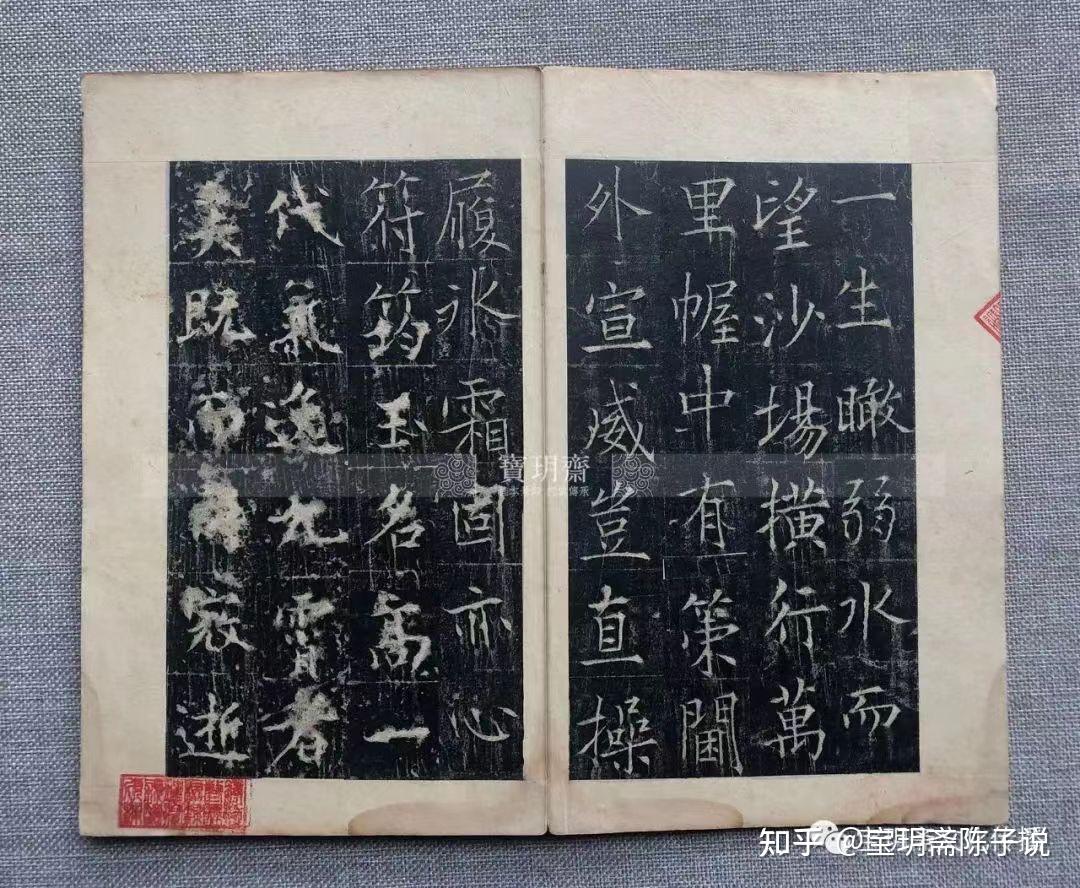 一生瞰弱水而
望沙場橫行萬
里幄中有第閫
外宣威豈直操
履冰霜固亦心
符筠玉名高一
代氣逸九霄者
矣既而逝
寶玥齋
知乎 @宝玥斋陈子说